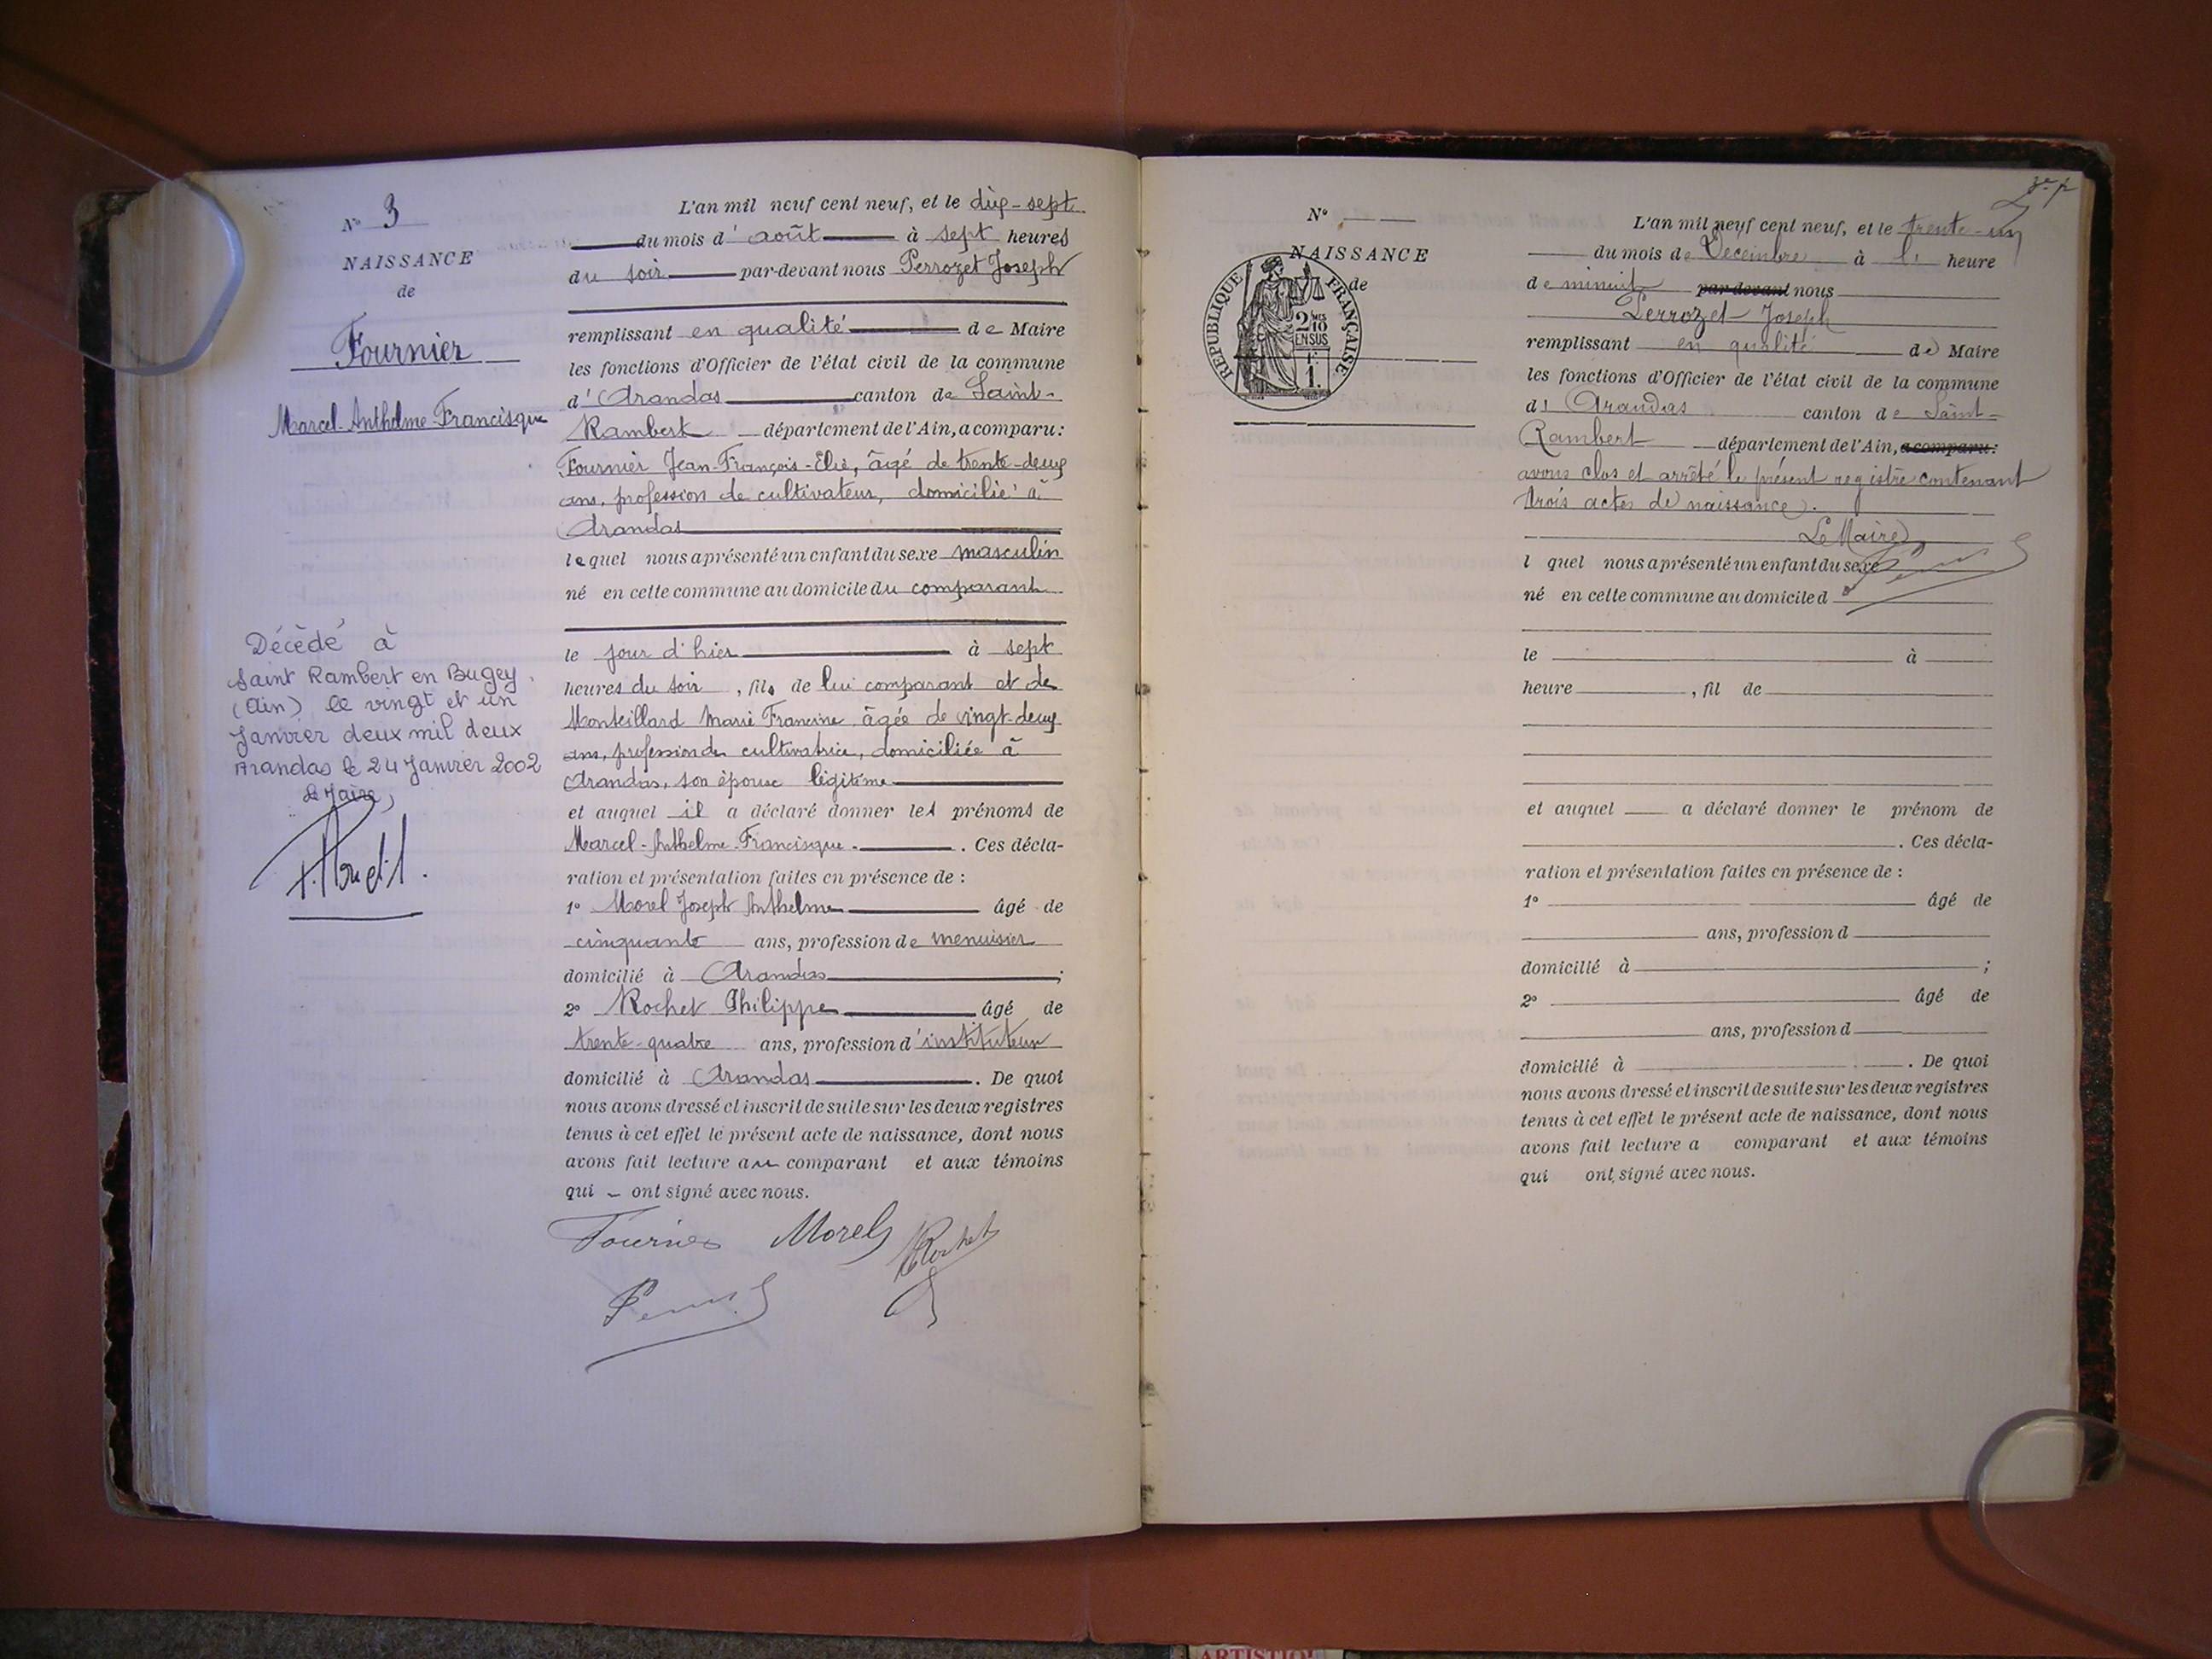 N° 3
NAISSANCE
de
Fournier
Marcel-Anthelme-Francisque
Décèdé à
Saint Rambert en Bugey
(Ain) le vingt et un
Janvier deux mil deux
Arandas le 24 Janvier 2002
Le Maire,
L'an mil neuf cent neuf, et le dix-sept
du mois d'août à sept heures
du soir par-devant nous Perrozet Joseph
remplissant en qualité de Maire
les fonctions d'Officier de l'état civil de la commune
d'Arandas canton de Saint-
Rambert département de l'Ain, a comparu:
Fournier Jean-François-Elie, âgé de trente-deux
ans, profession de cultivateur, domicilié à
Arandas
lequel nous a présenté un enfant du sexe masculin
né en cette commune au domicile du comparant
le jour d'hier à sept
heures du soir, fils de lui comparant et de
Monteillard Marie Francine âgée de vingt-deux
ans, profession de cultivatrice, domiciliée à
Arandas, son épouse légitime
et auquel il a déclaré donner les prénoms de
Marcel-Anthelme-Francisque. Ces décla-
ration et présentation faites en présence de :
1° Morel Joseph Anthelme âgé de
cinquante ans, profession de menuisier
domicilié à Arandas ;
2° Rochet Philippe âgé de
trente-quatre ans, profession d'instituteur
domicilié à Arandas. De quoi
nous avons dressé et inscrit de suite sur les deux registres
tenus à cet effet le présent acte de naissance, dont nous
avons fait lecture au comparant et aux témoins
qui - ont signé avec nous.
Fournier Morel Rochet
N°
NAISSANCE
de
REPUBLIQUE FRANÇAISE
2/10
EN SUS
1 F.
L'an mil neuf cent neuf, et le trente-un
du mois de Décembre à l' heure
de minuit par-devant nous
Perrozet Joseph
remplissant en qualité de Maire
les fonctions d'Officier de l'état civil de la commune
d'Arandas canton de Saint-
Rambert département de l'Ain, a comparu:
avons clos et arrêté le présent registre contenant
trois actes de naissance.
Le Maire
l quel nous a présenté un enfant du sexe
né en cette commune au domicile d
le à
heure , fil de
et auquel a déclaré donner le prénom de
. Ces décla-
ration et présentation faites en présence de :
1° âgé de
ans, profession d
domicilié à ;
2° âgé de
ans, profession d
domicilié à . De quoi
nous avons dressé et inscrit de suite sur les deux registres
tenus à cet effet le présent acte de naissance, dont nous
avons fait lecture a comparant et aux témoins
qui ont signé avec nous.